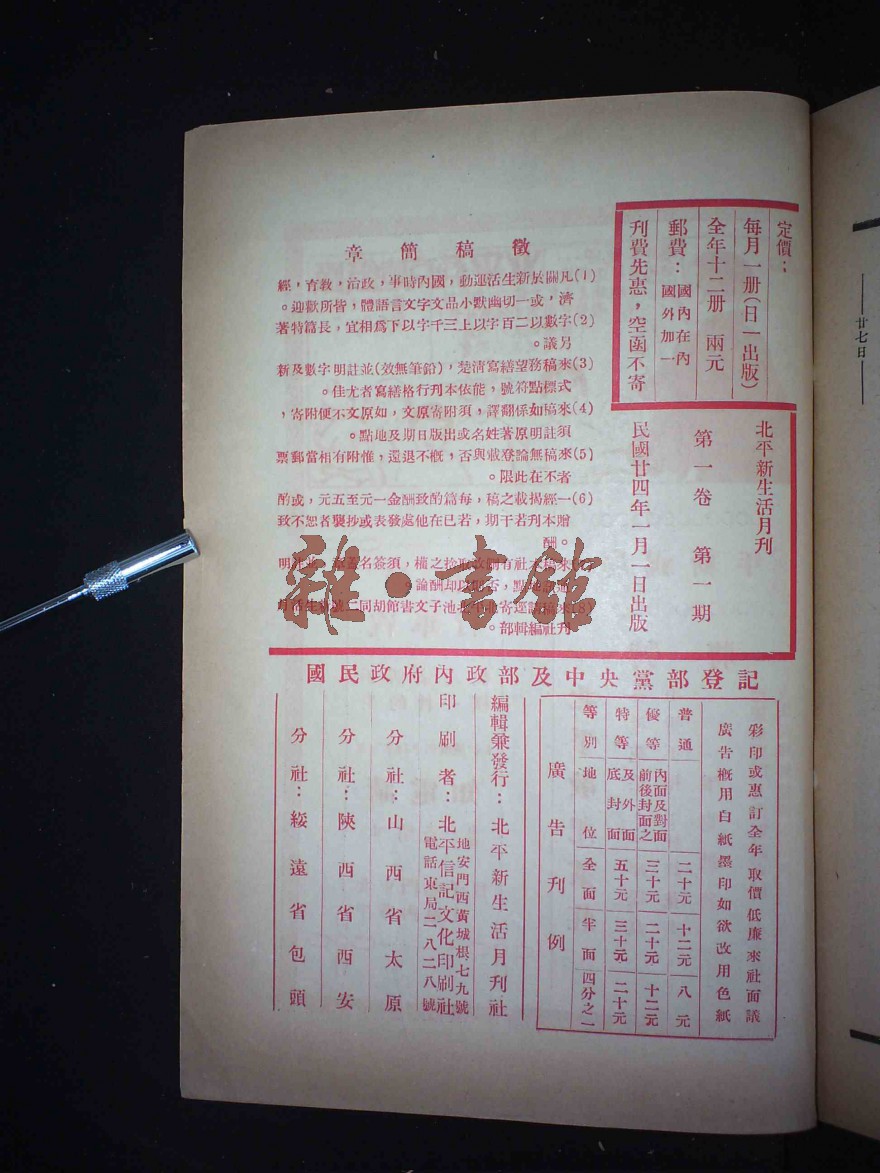 定價：
每月一册（日一出版）
全年十二册 兩元
郵費：國內在內
國外加一
刊費先惠，空函不寄
北平新生活月刊
第一卷 第一期
民國廿四年一月一日出版
徵稿簡章
(1)凡關於新生活運動，國內時事，政治，教育，經
濟，或一切幽默小品文字文言語體，皆所歡迎。
(2)字數以二百字以上三千字以下為相宜，長篇特著
另議。
(3)來稿務望繕寫清楚，（鉛筆無效）並註明字數及新
式標點符號，能依本刊行格繕寫者尤佳。
(4)來稿如係翻譯，須附寄原文，如原文不便附寄，
須註明原著姓名或出版日期及地點。
(5)來稿無論登載與否，概不退還，惟附有相當郵票
者不在此限。
(6)一經揭載之稿，每篇酌致酬金一元至五元，或酌
贈本刊若干期，若已在他處發表或抄襲者恕不致
酬。
本社有
點，否則以却酬論。
池子文書館胡同二號新生活月
刊社編輯部。
國民政府內政部及中央黨部登記
彩印或惠訂全年取價低廉來社面議
廣告概用白紙墨印如欲改用色紙
普通 二十元 十二元 八元
優等 內面及對面前後封面之 三十元 二十元 十二元
特等 底封面及外面 五十元 三十元 二十元
等別 地位 全面 半面 四分之一
廣告刊例
編輯兼發行：北平新生活月刊社
地安門西黃城根七九號
印刷者：北平信記文化印刷社
電話東局二八二八號
分社：山西省太原
分社：陝西省西安
分社：綏遠省包頭
雜·書館
廿七日